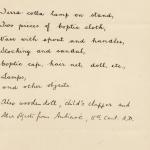 Terra cotta lamp on stand,
Two pieces of Coptic cloth,
Vase with spout and handles,
Stocking and sandal,
Coptic cap, hair net, doll, etc.,
Lamps,
and other objects
Also wooden doll, child's clapper and
other objects from Antinoë, Cent. A.D.